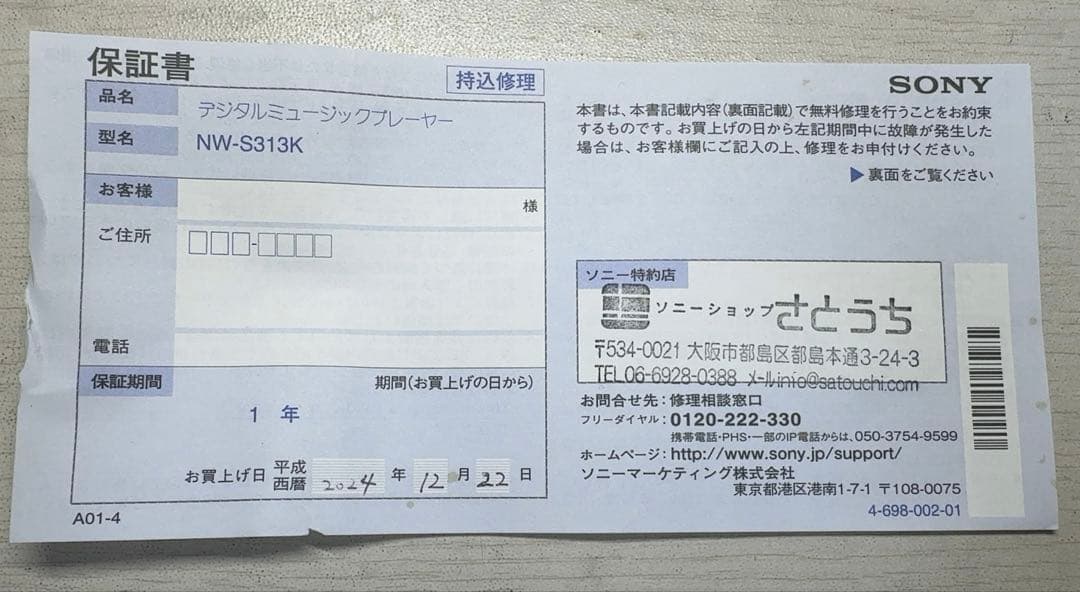 保証書
持込修理
品名
デジタルミュージックプレーヤー
型名
NW-S313K
お客様
様
ご住所
□□□-□□□□
電話
保証期間
期間(お買上げの日から)
1 年
お買上げ日 平成 西暦 2024 年 12 月 22 日
A01-4
SONY
本書は、本書記載内容(裏面記載)で無料修理を行うことをお約束
するものです。お買上げの日から左記期間中に故障が発生した
場合は、お客様欄にご記入の上、修理をお申付けください。
▶裏面をご覧ください
ソニー特約店
ソニーショップさとうち
〒534-0021 大阪市都島区都島本通3-24-3
TEL06-6928-0388 メールinfo@satouchi.com
お問合せ先:修理相談窓口
フリーダイヤル:0120-222-330
携帯電話・PHS・一部のIP電話からは、050-3754-9599
ホームページ:http://www.sony.jp/support/
ソニーマーケティング株式会社
東京都港区港南1-7-1 〒108-0075
4-698-002-01